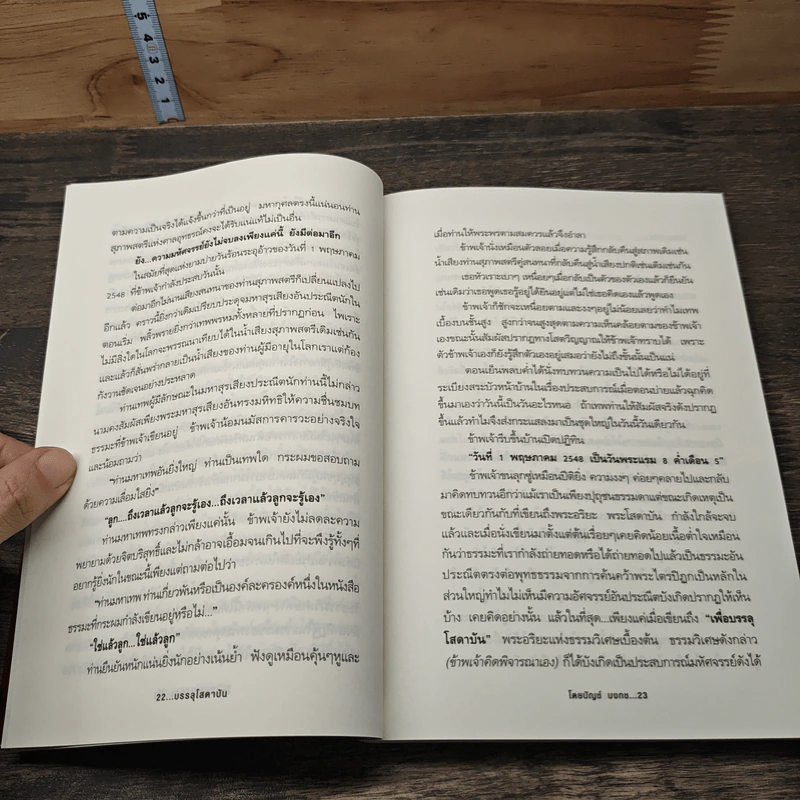 5
4
3
2
1
ตามความเป็นจริงได้แจ้งขึ้นกว่าที่เป็นอยู่ มหากุศลตรงนี้แน่นอนท่าน
สุภาพสตรีแห่งศาลอุทธรณ์คงจะได้รับแน่แท้ไม่เป็นอื่น
ยัง...ความมหัศจรรย์ยังไม่จบลงเพียงแค่นี้ ยังมีต่อมาอีก
ในสมัยที่สุดแห่งยามบ่ายวันร้อนระอุอ้าวของวันที่ 1 พฤษภาคม
2548 ที่ข้าพเจ้ากำลังประสบวันนั้น
ต่อมาอีกไม่นานเสียงสนทนาของท่านสุภาพสตรีก็เปลี่ยนแปลงไป
อีกแล้ว คราวนี้ยิ่งกว่าเดิมเปรียบประดุจมหาสุรเสียงอันประณีตนักใน
ตอนเริ่ม พลิ้วพรายยิ่งกว่าเทพพรหมทั้งหลายที่ปรากฏก่อน ไพเราะ
ไม่มีสิ่งใดในโลกจะพรรณนาเทียบได้ในน้ำเสียงสุภาพสตรีเดิมเช่นกัน
และแล้วก็สั่นพร่ากลายเป็นน้ำเสียงของท่านผู้มีอายุในโลกเราแต่ก้อง
กังวานชัดเจนอย่างประหลาด
ท่านเทพผู้มีลักษณะในมหาสุรเสียงประณีตนักท่านนี้ไม่กล่าว
นามคงสัมผัสเพียงพระมหาสุรเสียงอันทรงมหิทธิให้ความชื่นชมบท
ธรรมะที่ข้าพเจ้าเขียนอยู่ ข้าพเจ้าน้อมนมัสการคารวะอย่างจริงใจ
และน้อมถามว่า
"ท่านมหาเทพอันยิ่งใหญ่ ท่านเป็นเทพใด กระผมขอสอบถาม
ด้วยความเลื่อมใสยิ่ง"
"ลูก....ถึงเวลาแล้วลูกจะรู้เอง...ถึงเวลาแล้วลูกจะรู้เอง"
ท่านมหาเทพทรงกล่าวเพียงแค่นั้น ข้าพเจ้ายังไม่ลดละความ
พยายามด้วยจิตบริสุทธิ์และไม่กล้าอาจเอื้อมจนเกินไปที่จะพึงรู้ทั้งๆที่
อยากรู้ยิ่งนักในขณะนี้เพียงแต่ถามต่อไปว่า
"ท่านมหาเทพ ท่านเกี่ยวพันหรือเป็นองค์ละครองค์หนึ่งในหนังสือ
ธรรมะที่กระผมกำลังเขียนอยู่หรือไม่..."
"ใช่แล้วลูก...ใช่แล้วลูก"
ท่านยืนยันหนักแน่นยิ่งนักอย่างเน้นย้ำ ฟังดูเหมือนคุ้นๆหูและ
22...บรรลุโสดาบัน
เมื่อท่านให้พระพรตามสมควรแล้วจึงอำลา
ข้าพเจ้านั่งเหมือนตัวลอยเมื่อความรู้สึกกลับคืนสู่สภาพเดิมเช่น
น้ำเสียงท่านสุภาพสตรีคู่สนทนาที่กลับคืนสู่น้ำเสียงปกติเช่นเดิมเช่นกัน
เธอหัวเราะเบาๆ เหนื่อยๆเมื่อกลับเป็นตัวของตัวเองแล้วก็ยืนยัน
เช่นเดิมว่าเธอพูดเธอรู้อยู่ได้ยินอยู่แต่ไม่ใช่เธอคิดเองแล้วพูดเอง
ข้าพเจ้าก็ชักจะเหนื่อยตามและงงๆอยู่ไม่น้อยเลยว่าทำไมเทพ
เบื้องบนชั้นสูง สูงกว่าจนสูงสุดตามความเห็นคล้อยตามของข้าพเจ้า
เองขณะนั้นสัมผัสปรากฏทางโสตวิญญาณให้ข้าพเจ้าทราบได้ เพราะ
ตัวข้าพเจ้าเองก็ยังรู้สึกตัวเองอยู่เสมอว่ายังไม่ถึงขั้นนั้นเป็นแน่
ตอนเย็นพลบค่ำได้นั่งทบทวนความเป็นไปได้หรือไม่ได้อยู่ที่
ระเบียงสระบัวหน้าบ้านในเรื่องประสบการณ์เมื่อตอนบ่ายแล้วฉุกคิด
ขึ้นมาเองว่าวันนี้เป็นวันอะไรหนอ ถ้าเทพท่านให้สัมผัสจริงดังปรากฏ
ขึ้นแล้วทำไมจึงส่งกระแสลงมาเป็นชุดใหญ่ในวันนี้วันเดียวกัน
ข้าพเจ้ารีบขึ้นบ้านเปิดปฏิทิน
"วันที่ 1 พฤษภาคม 2548 เป็นวันพระแรม 8 ค่ำเดือน 5"
ข้าพเจ้าขนลุกซู่เหมือนปิติยิ่ง ความงงๆ ค่อยๆคลายไปและกลับ
มาคิดทบทวนอีกว่าแม้เราเป็นเพียงปุถุชนธรรมดาแต่ขณะเกิดเหตุเป็น
ขณะเดียวกันกับที่เขียนถึงพระอริยะ พระโสดาบัน กำลังใกล้จะจบ
แล้วและเมื่อนั่งเขียนมาตั้งแต่ต้นเรื่อยๆเคยคิดน้อยเนื้อต่ำใจเหมือน
กันว่าธรรมะที่เรากำลังถ่ายทอดหรือได้ถ่ายทอดไปแล้วเป็นธรรมะอัน
ประณีตตรงต่อพุทธธรรมจากการค้นคว้าพระไตรปิฎกเป็นหลักใน
ส่วนใหญ่ทำไมไม่เห็นมีความอัศจรรย์อันประณีตบังเกิดปรากฏให้เห็น
บ้าง เคยคิดอย่างนั้น แล้วในที่สุด...เพียงแค่เมื่อเขียนถึง "เพื่อบรรลุ
โสดาบัน" พระอริยะแห่งธรรมวิเศษเบื้องต้น ธรรมวิเศษดังกล่าว
(ข้าพเจ้าคิดพิจารณาเอง) ก็ได้บังเกิดเป็นประสบการณ์มหัศจรรย์ดังได้
โดยบัญช์ บงกช...23